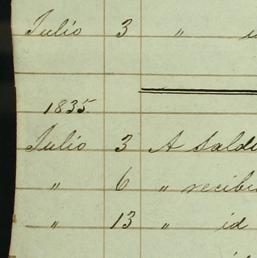 Julio 3 " id
1835.
Julio 3 A Sald
" 6 " recibi
" 13 " id